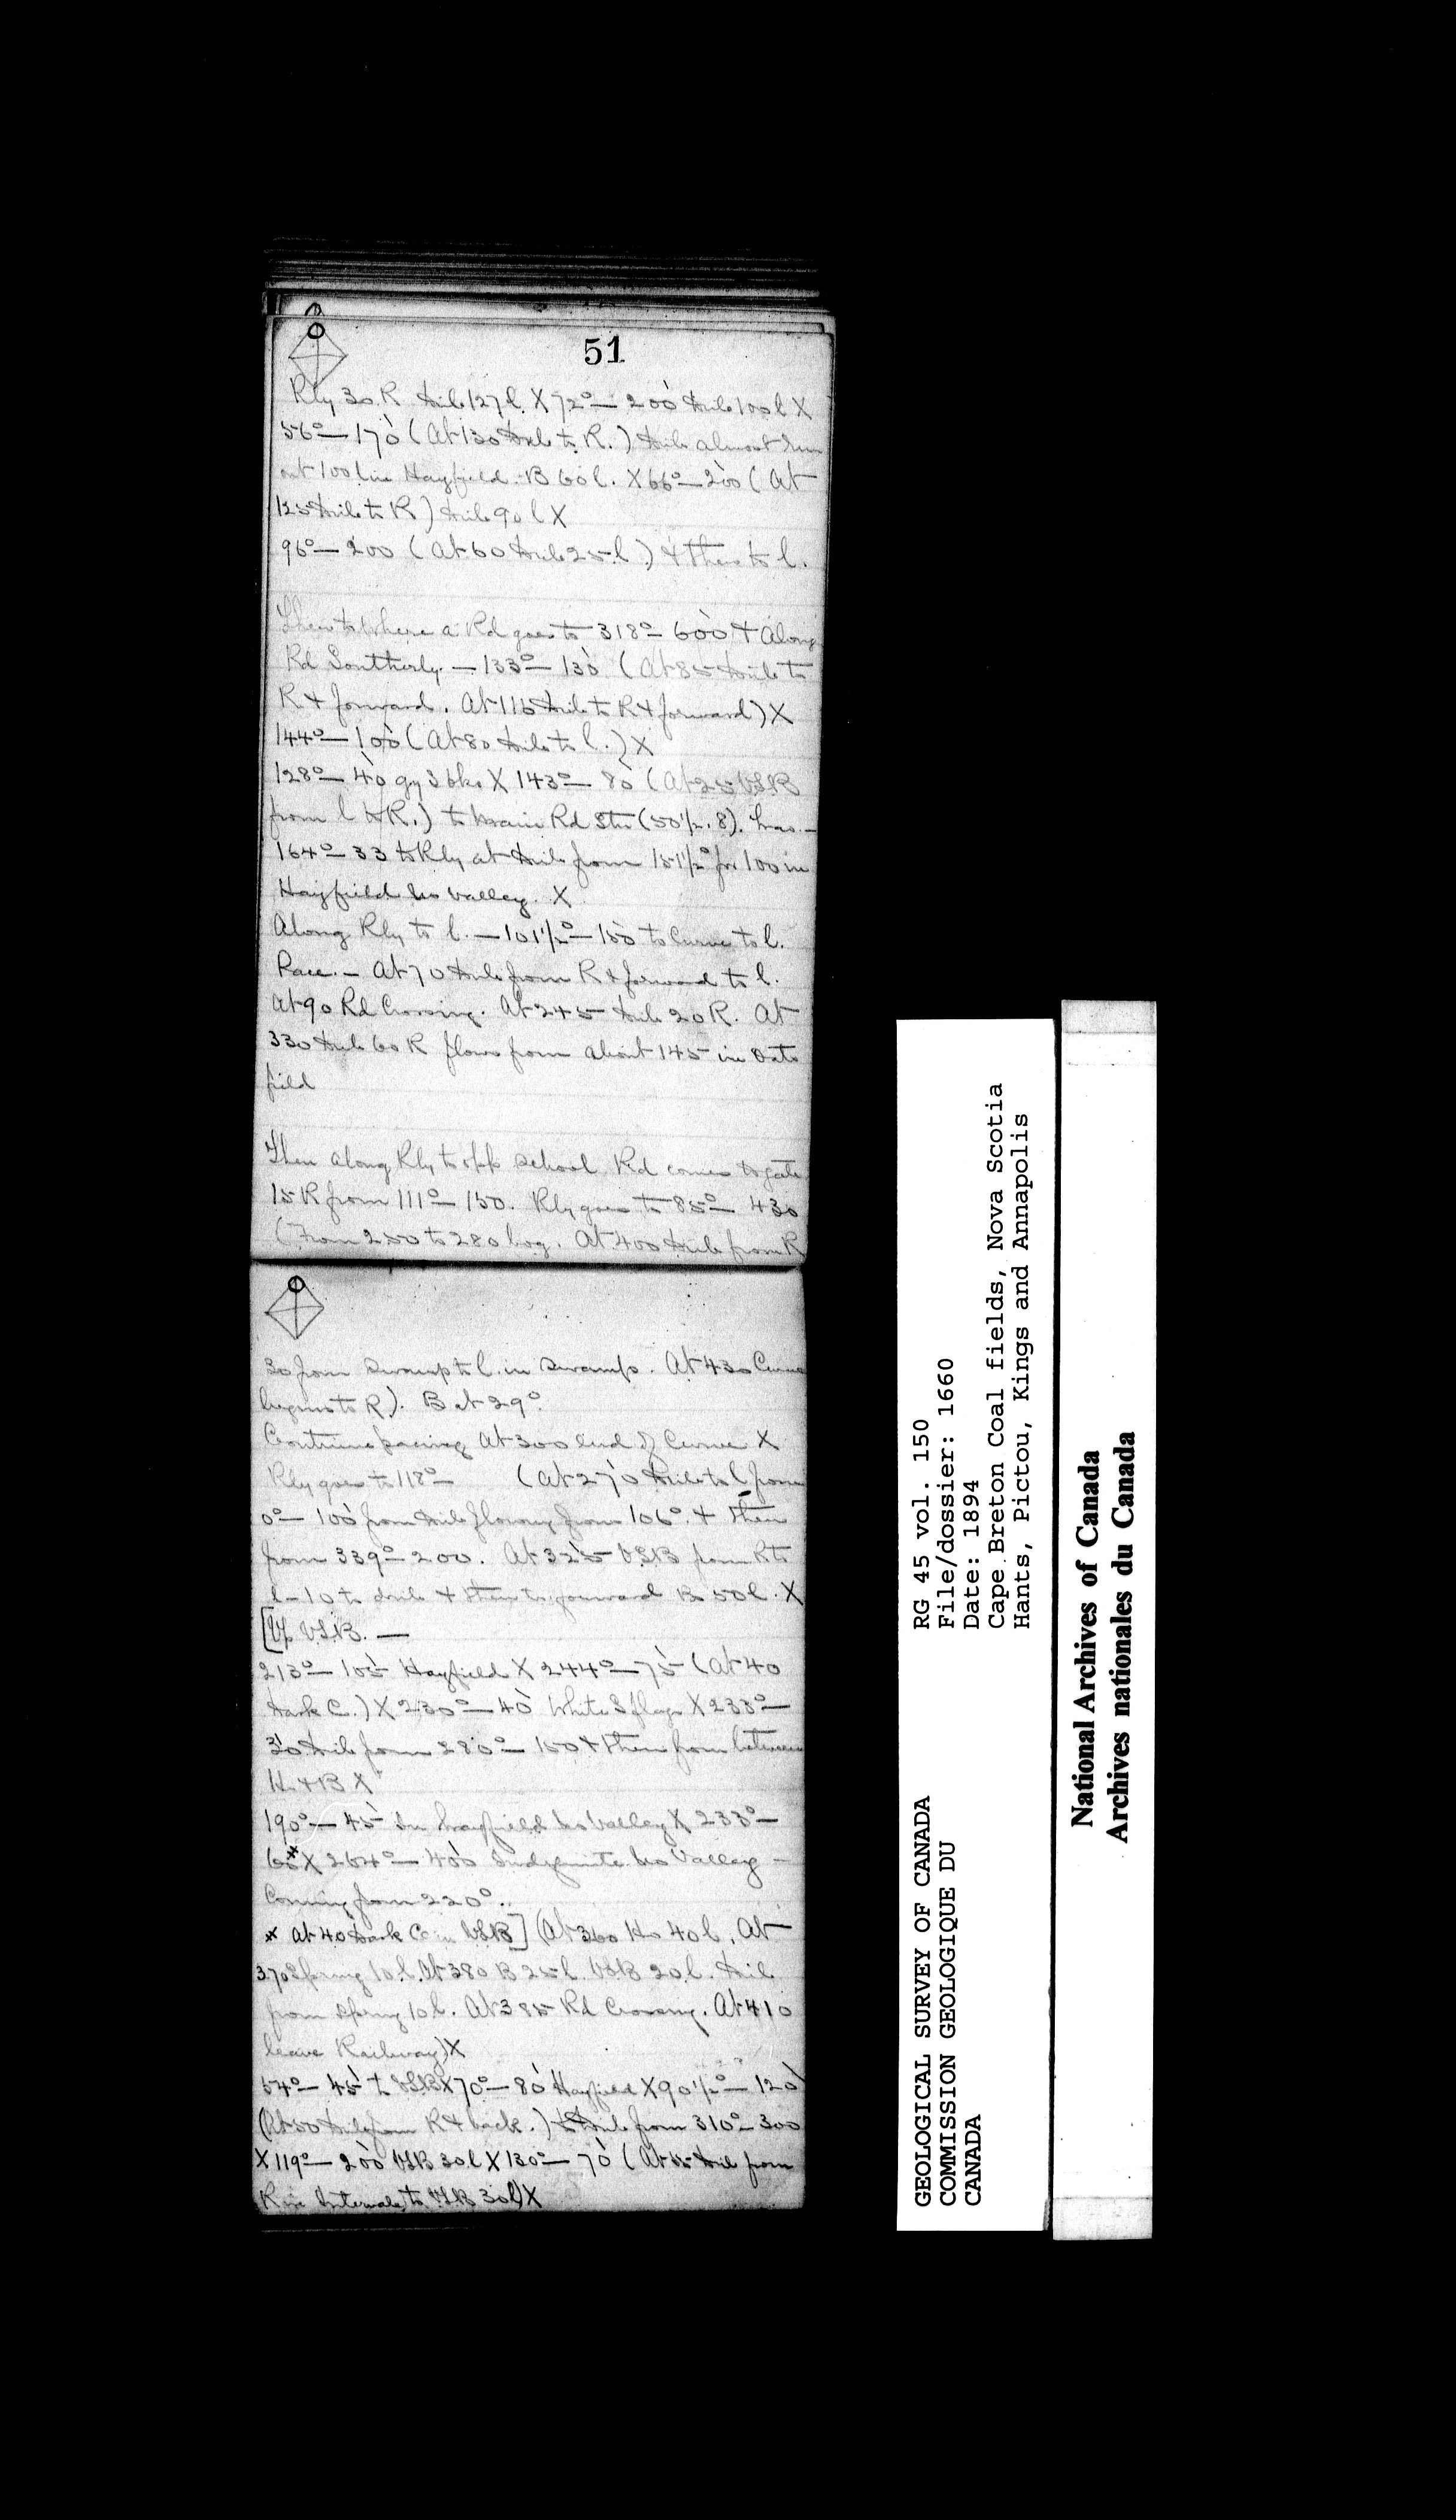 51
Rly 30 R 127 l X 72° — 200 100 l X
56° — 170 (At 130 to R.) almost
out 100 l in Hayfield. B 60 l. X 66° — 200 (At
125 to R) 90 l X
96° — 200 (At 60 25 l.) & then to l.
Then to where a Rd goes to 318° — 600 & Along
Rd Southerly. — 133° — 130 (At 85 to
R & forward. At 115 to R & forward) X
144° — 100 (At 80 to l.) X
128° — 40 gy S bks X 143° — 80 (At 25 VSB
from l to R.) to Main Rd Stn (50½. 8).
164° — 33 to Rly at from 151½° for 100 in
Hayfield no valley. X
Along Rly to l. — 101½° — 150 to Curve to l.
Pace. — At 70 from R & forward to l.
At 90 Rd Crossing. At 245 20 R. At
330 60 R flows from about 145 in Oats
field
Then along Rly to opp school Rd comes to gate
15 R from 111° — 150. Rly goes to 85° — 430
(From 250 to 280 bog. At 400 from R
30 from swamp to l. in swamp. At 430 Curve
begins to R). B at 29°
Continue pacing At 300 end of Curve X
Rly goes to 118° — (At 270 to l from
0° — 100 from flowing from 106° & then
from 339° — 200. At 325 VSB from R to
l — 10 to & then to forward B 50 l. X
[Up VSB. —
213° — 105 Hayfield X 244° — 75 (At 40
dark C.) X 230° — 40 White S flags X 233° —
30 from 280° — 150 & then from between
H. & B X
190° — 45 In hayfield no valley X 233° —
65* X 264° — 400 Indefinite no Valley —
Coming from 220°.
* At 40 dark C in VSB] (At 360 Ho 40 l. At
370 Spring 10 l. At 380 B 25 l. VSB 20 l.
from Spring 10 l. At 385 Rd Crossing. At 410
leave Railway) X
54° — 45 to VSB X 70° — 80 Hayfield X 90½° — 120
(At 50 from R & back.) to from 310° — 300
X 119° — 200 VSB 30 l X 130° — 70 (At 55 from
R in Intervale to VSB 30 l) X
GEOLOGICAL SURVEY OF CANADA
COMMISSION GEOLOGIQUE DU
CANADA
RG 45 vol. 150
File/dossier: 1660
Date: 1894
Cape Breton Coal fields, Nova Scotia
Hants, Pictou, Kings and Annapolis
National Archives of Canada
Archives nationales du Canada